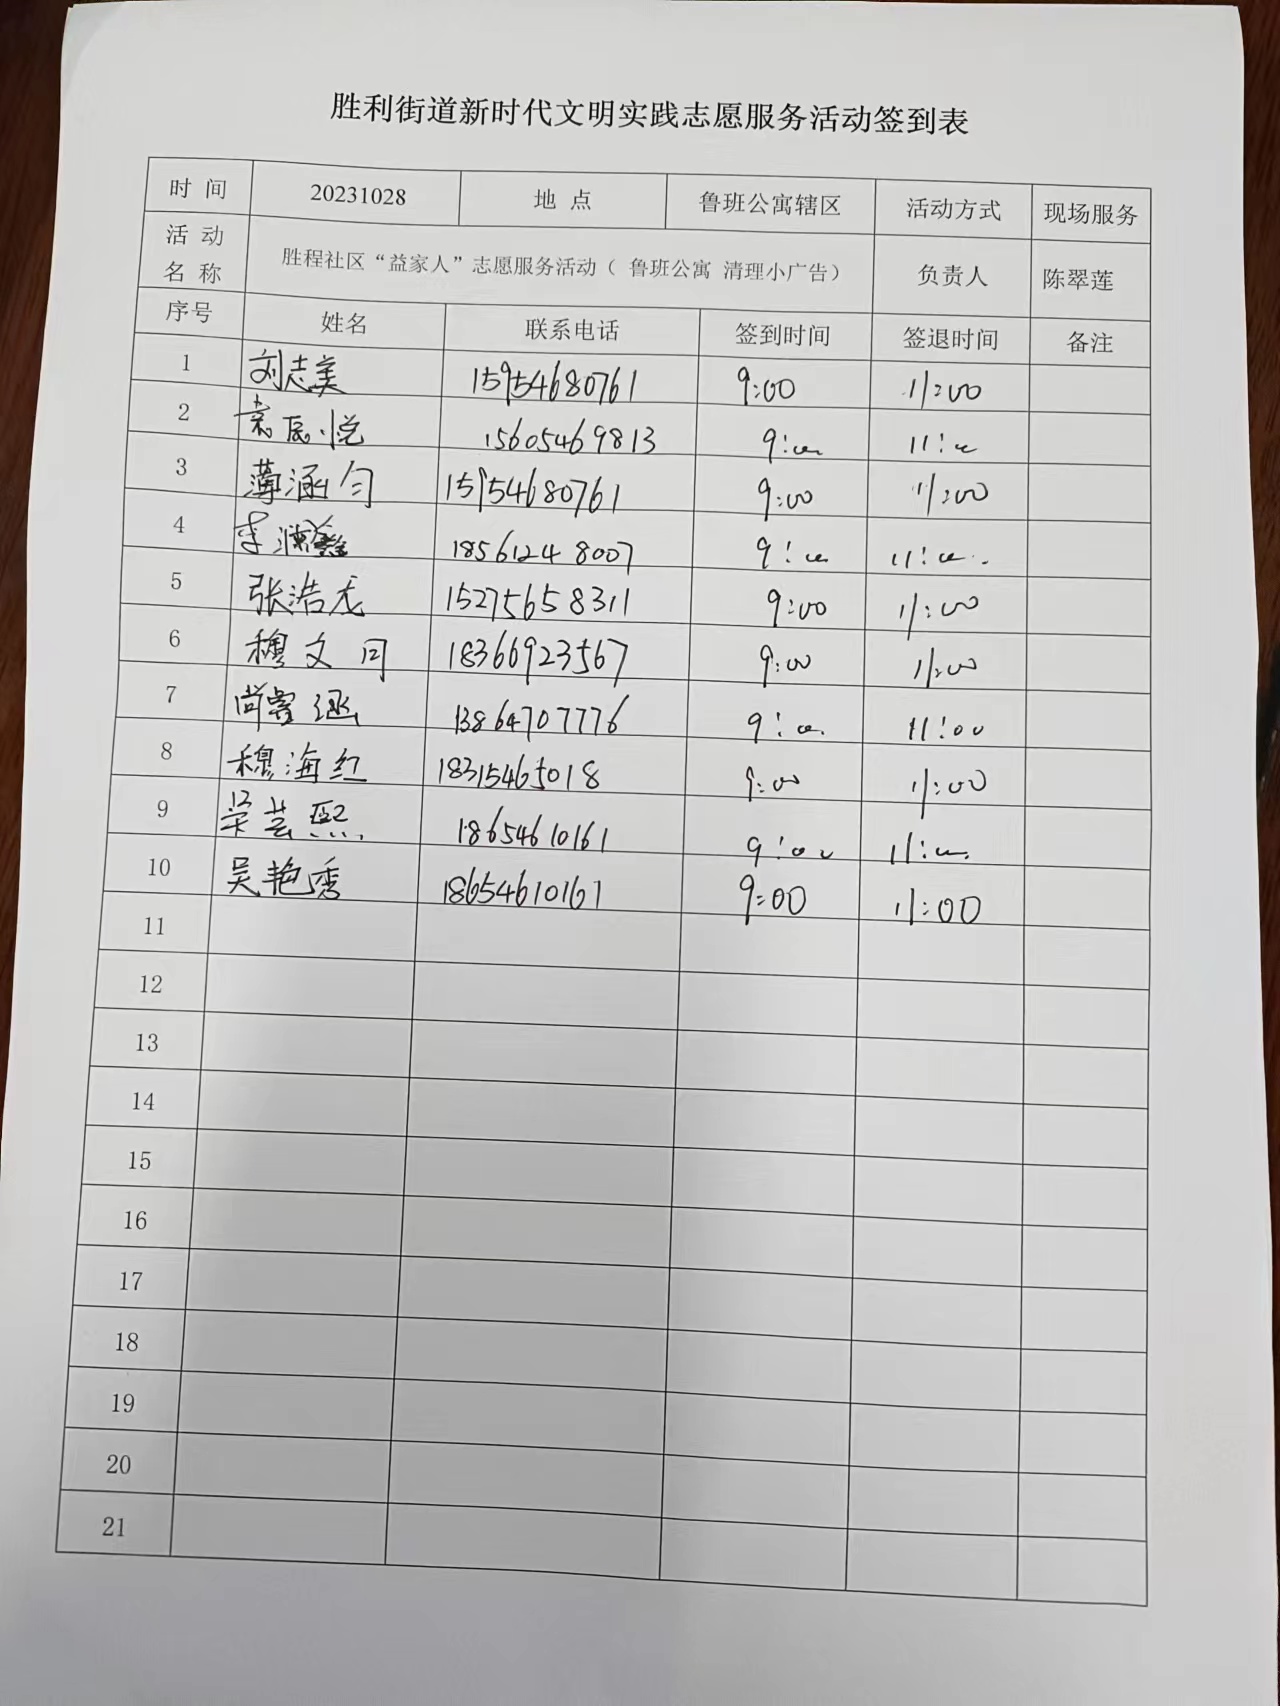 胜利街道新时代文明实践志愿服务活动签到表
时 间 20231028 地 点 鲁班公寓辖区 活动方式 现场服务
活 动 名 称 胜程社区“益家人”志愿服务活动（ 鲁班公寓 清理小广告） 负责人 陈翠莲
序号 姓名 联系电话 签到时间 签退时间 备注
1 刘志美 15954680761 9:00 11:00
2 15605469813 9:00 11:00
3 薄涵匀 15954680761 9:00 11:00
4 李 18561248007 9:00 11:00
5 张浩龙 15275658311 9:00 11:00
6 穆文同 18366923567 9:00 11:00
7 尚睿涵 13864707776 9:00 11:00
8 穆海红 18315465018 9:00 11:00
9 荣芸熙 18654610161 9:00 11:00
10 吴艳秀 18654610161 9:00 11:00
11
12
13
14
15
16
17
18
19
20
21